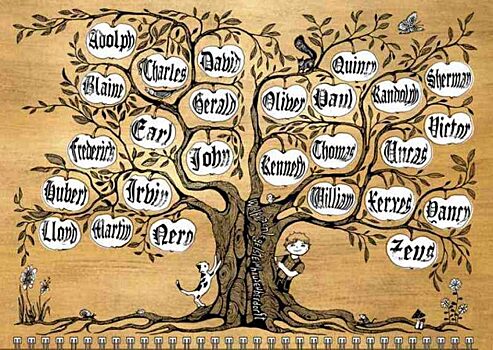 Adolph
Blaine
Charles
David
Earl
Frederick
Gerald
Hubert
Irvin
John
Kenneth
Lloyd
Martin
Nero
Oliver
Paul
Quincy
Randolph
Sherman
Thomas
Uncas
Victor
William
Xerxes
Yancy
Zeus